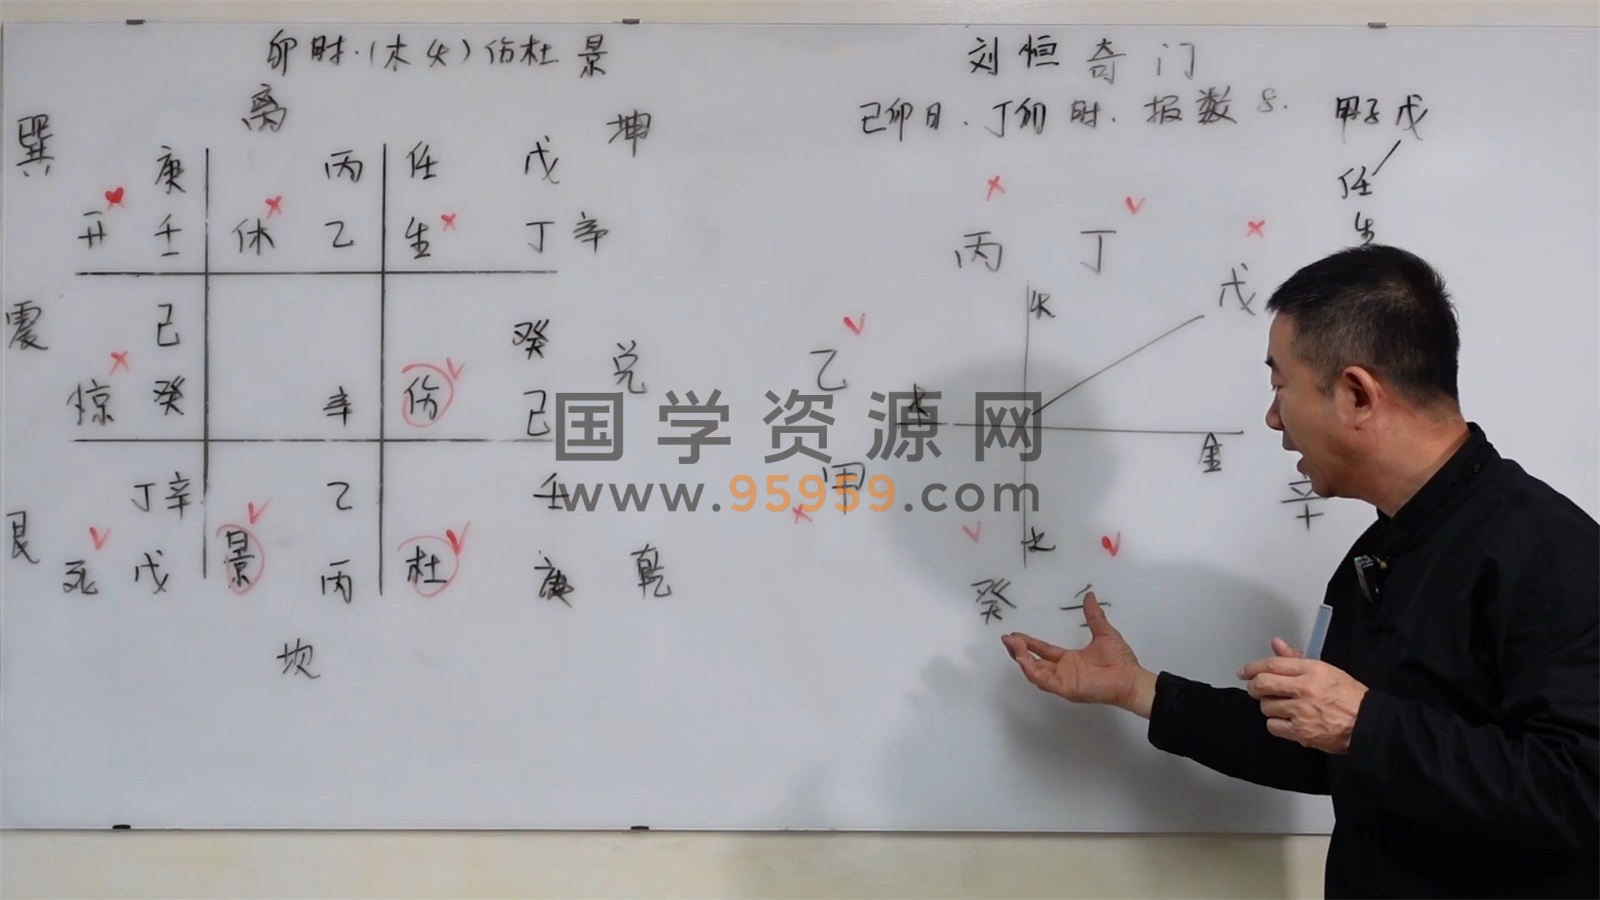 卯时.(木火)伤杜景
刘恒奇门
己卯日.丁卯时.报数8.
甲子戊
任
生
离
巽
坤
庚 丙 任 戊
开 壬 休 乙 生 丁 辛
震
己 癸
兑
惊 癸 辛 伤 己
丁辛 乙 壬
艮
死 戊 景 丙 杜 庚
乾
坎
丙 丁
戊
火
乙
木
金
甲
辛
水
癸 壬
国学资源网
www.95959.com